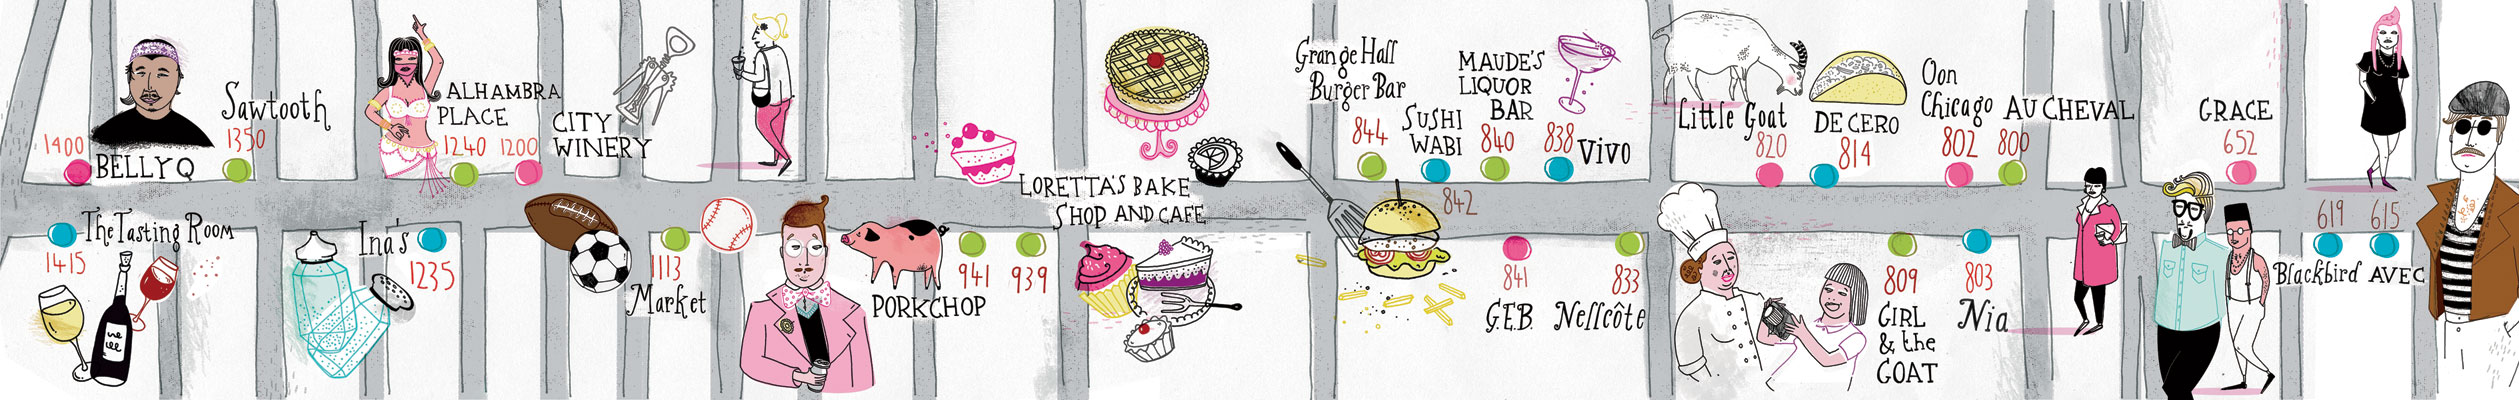 1400
BELLY Q
Sawtooth
1350
ALHAMBRA
PLACE
1240
1200
CITY
WINERY
LORETTA'S BAKE
SHOP AND CAFE
Grange Hall
Burger Bar
844
SUSHI
WABI
842
MAUDE'S
LIQUOR
BAR
840
838
Vivo
Little Goat
820
DE CERO
814
Oon
Chicago
802
AU CHEVAL
800
GRACE
652
The Tasting Room
1415
Ina's
1235
1113
Market
PORKCHOP
941
939
841
G.E.B.
833
Nellcôte
809
GIRL
& the
GOAT
803
Nia
619
Blackbird
615
AVEC